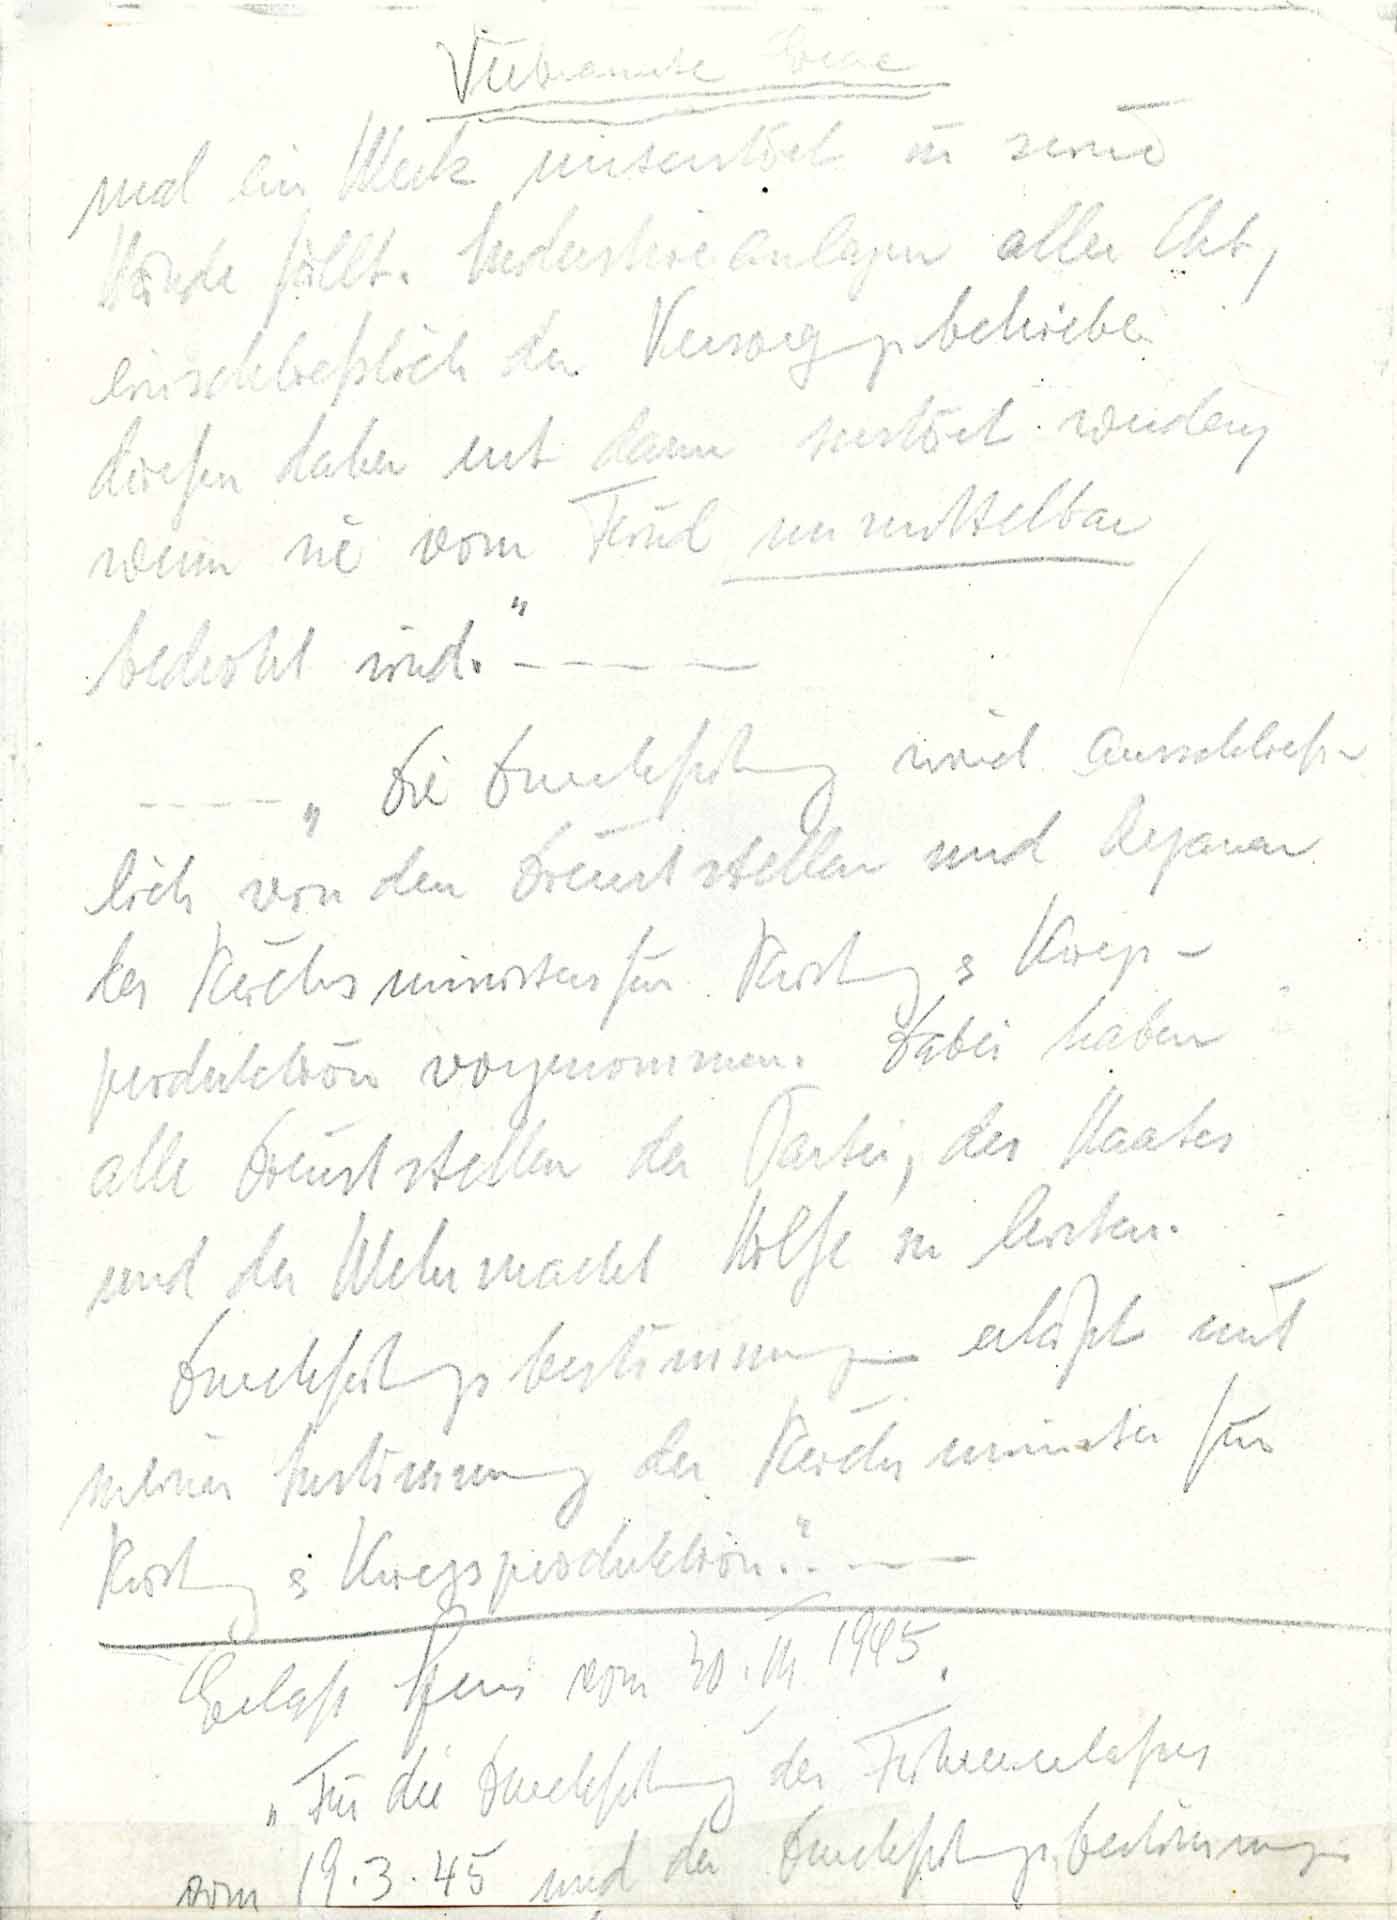 Verbrannte Erde
und ein Werk unzerstört in seine
Hände fällt. Industrieanlagen aller Art,
einschließlich der Versorgungsbetriebe
dürfen daher erst dann zerstört werden,
wenn sie vom Feind unmittelbar
bedroht sind." – – – –
– – – – „Die Durchführung wird ausschließ-
lich von den Dienststellen und Organen
des Reichsministers für Rüstung & Kriegs-
produktion vorgenommen. Dabei haben
alle Dienststellen der Partei, des Staates
und der Wehrmacht Hilfe zu leisten.
Durchführungsbestimmungen erläßt mit
meiner Zustimmung der Reichsminister für
Rüstung & Kriegsproduktion." – –
Erlaß vom 30. III 1945.
„Für die Durchführung des Führererlasses
vom 19.3.45 und der Durchführungsbestimmung